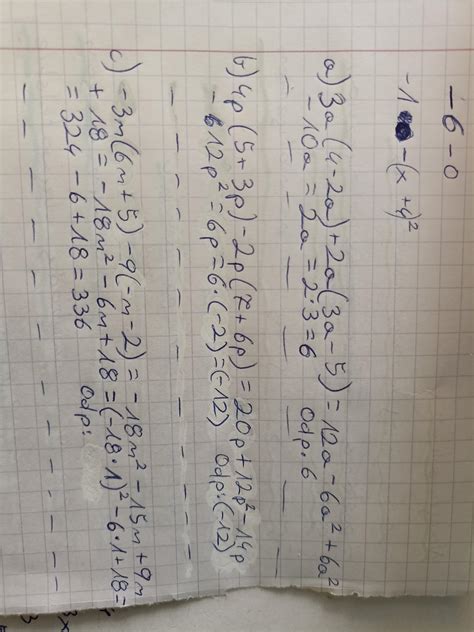 -6-0
-1 -(x+y)²
a) 3a(4-2a)+2a(3a-5)=12a-6a²+6a²
-10a=2a=2·3=6 Odp. 6
b) 4p(5+3p)-2p(7+6p)=20p+12p²-14p
-12p²=6p=6·(-2)=(-12) Odp:(-12)
c) -3m(6m+5)-9(-m-2)=-18m²-15m+9m
+18=-18m²-6m+18=(-18·1)²-6·1+18=
=324-6+18=336 Odp:
3x